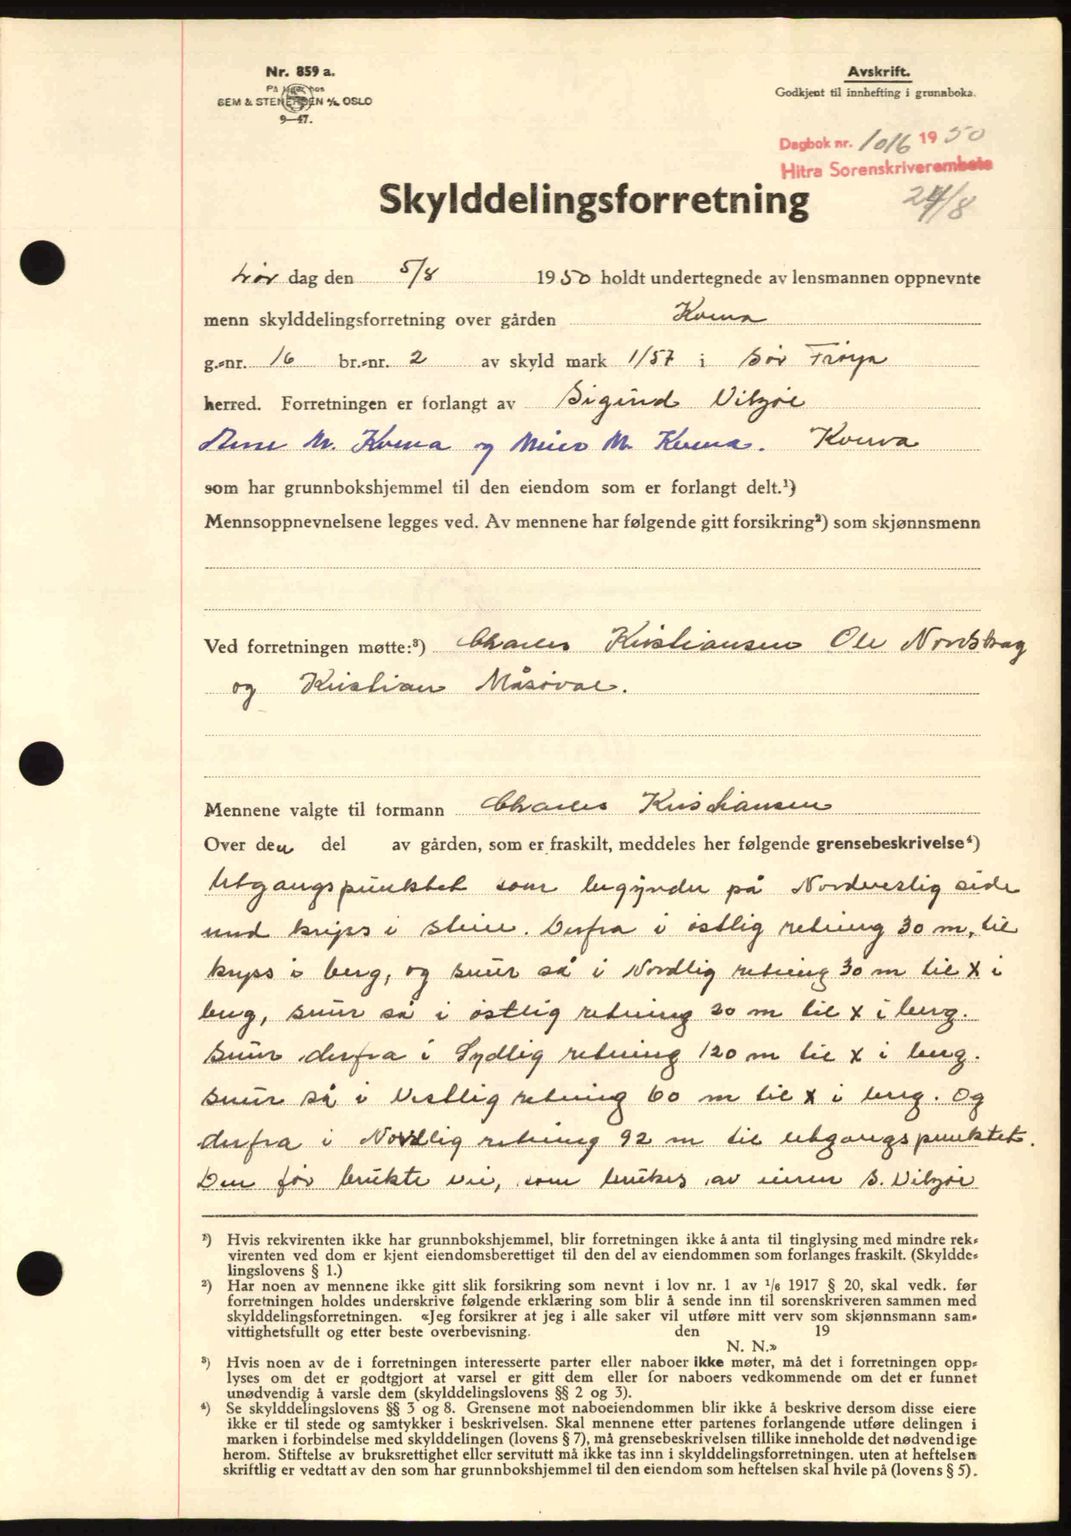 Nr. 859 a.
På lager hos
SEM & STENERSEN A/S, OSLO
9—47.
Avskrift.
Godkjent til innhefting i grunnboka.
Dagbok nr. 1016 1950
Hitra Sorenskriverembete
24/8
Skylddelingsforretning
Lør dag den 5/8 1950 holdt undertegnede av lensmannen oppnevnte
menn skylddelingsforretning over gården Kverva
g.-nr. 16 br.-nr. 2 av skyld mark 1/57 i Sør Frøya
herred. Forretningen er forlangt av Sigurd Vibzøe
M. Kverva og M. Kverva. Kverva
som har grunnbokshjemmel til den eiendom som er forlangt delt.¹)
Mennsoppnevnelsene legges ved. Av mennene har følgende gitt forsikring²) som skjønnsmenn
Ved forretningen møtte:³) Charles Kristiansen Ole Nordskag
og Kristian Måsøval.
Mennene valgte til formann Charles Kristiansen
Over den del av gården, som er fraskilt, meddeles her følgende grensebeskrivelse⁴)
Utgangspunktet som begynder på Nordvestlig side
med kryss i stein. Derfra i østlig retning 30 m, til
kryss i berg, og snur så i Nordlig retning 30 m til x i
berg, snur så i østlig retning 20 m til x i berg.
Snur derfra i Sydlig retning 120 m til x i berg.
snur så i Vestlig retning 60 m til x i berg. Og
derfra i Nordlig retning 92 m til utgangspunktet.
Den før brukte vei, som brukes av eieren S. Vibzøe
¹) Hvis rekvirenten ikke har grunnbokshjemmel, blir forretningen ikke å anta til tinglysing med mindre rek-
virenten ved dom er kjent eiendomsberettiget til den del av eiendommen som forlanges fraskilt. (Skyldde-
lingslovens § 1.)
²) Har noen av mennene ikke gitt slik forsikring som nevnt i lov nr. 1 av 1/6 1917 § 20, skal vedk. før
forretningen holdes underskrive følgende erklæring som blir å sende inn til sorenskriveren sammen med
skylddelingsforretningen. «Jeg forsikrer at jeg i alle saker vil utføre mitt verv som skjønnsmann sam-
vittighetsfullt og etter beste overbevisning. den 19
N. N.»
³) Hvis noen av de i forretningen interesserte parter eller naboer ikke møter, må det i forretningen opp-
lyses om det er godtgjort at varsel er gitt dem eller for naboers vedkommende om det er funnet
unødvendig å varsle dem (skylddelingslovens §§ 2 og 3).
⁴) Se skylddelingslovens §§ 3 og 8. Grensene mot naboeiendommen blir ikke å beskrive dersom disse eiere
ikke er til stede og samtykker i beskrivelsen. Skal mennene etter partenes forlangende utføre delingen i
marken i forbindelse med skylddelingen (lovens § 7), må grensebeskrivelsen tillike inneholde det nødvendige
herom. Stiftelse av bruksrettighet eller servitutt må ikke tas inn i skylddelingsforretningen. uten at heftelsen
skriftlig er vedtatt av den som har grunnbokshjemmel til den eiendom som heftelsen skal hvile på (lovens § 5).